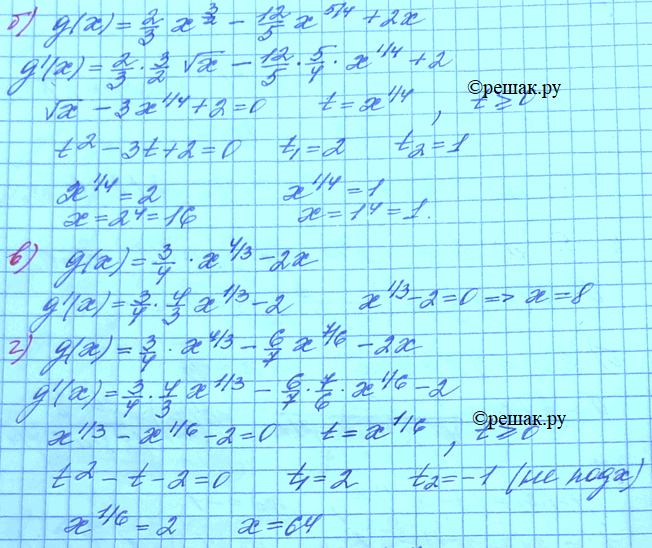 б) g(x) = 2/3 x^(3/2) - 12/5 x^(5/4) + 2x
g'(x) = 2/3 · 3/2 √x - 12/5 · 5/4 · x^(1/4) + 2
©решак.ру
√x - 3x^(1/4) + 2 = 0 t = x^(1/4), t ≥ 0
t² - 3t + 2 = 0 t₁ = 2 t₂ = 1
x^(1/4) = 2 x^(1/4) = 1
x = 2⁴ = 16 x = 1⁴ = 1.
в) g(x) = 3/4 · x^(4/3) - 2x
g'(x) = 3/4 · 4/3 x^(1/3) - 2 x^(1/3) - 2 = 0 => x = 8
г) g(x) = 3/4 · x^(4/3) - 6/7 x^(7/6) - 2x
g'(x) = 3/4 · 4/3 x^(1/3) - 6/7 · 7/6 · x^(1/6) - 2
©решак.ру
x^(1/3) - x^(1/6) - 2 = 0 t = x^(1/6), t ≥ 0
t² - t - 2 = 0 t₁ = 2 t₂ = -1 (не подх)
x^(1/6) = 2 x = 64